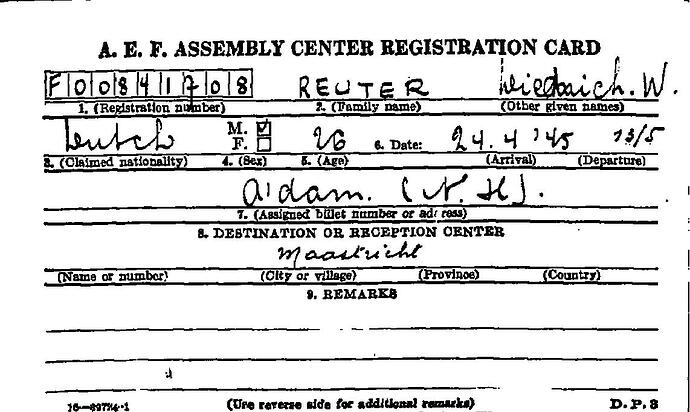 A. E. F. ASSEMBLY CENTER REGISTRATION CARD
F 0 0 8 4 1 7 0 8 REUTER Diedrich. W.
1. (Registration number) 2. (Family name) (Other given names)
Dutch M. ☑ 26 6. Date: 24.4 '45 13/5
F. ☐
3. (Claimed nationality) 4. (Sex) 5. (Age) (Arrival) (Departure)
A'dam. (N.H).
7. (Assigned billet number or address)
8. DESTINATION OR RECEPTION CENTER
Maastricht
(Name or number) (City or village) (Province) (Country)
9. REMARKS
(Use reverse side for additional remarks) D. P. 3